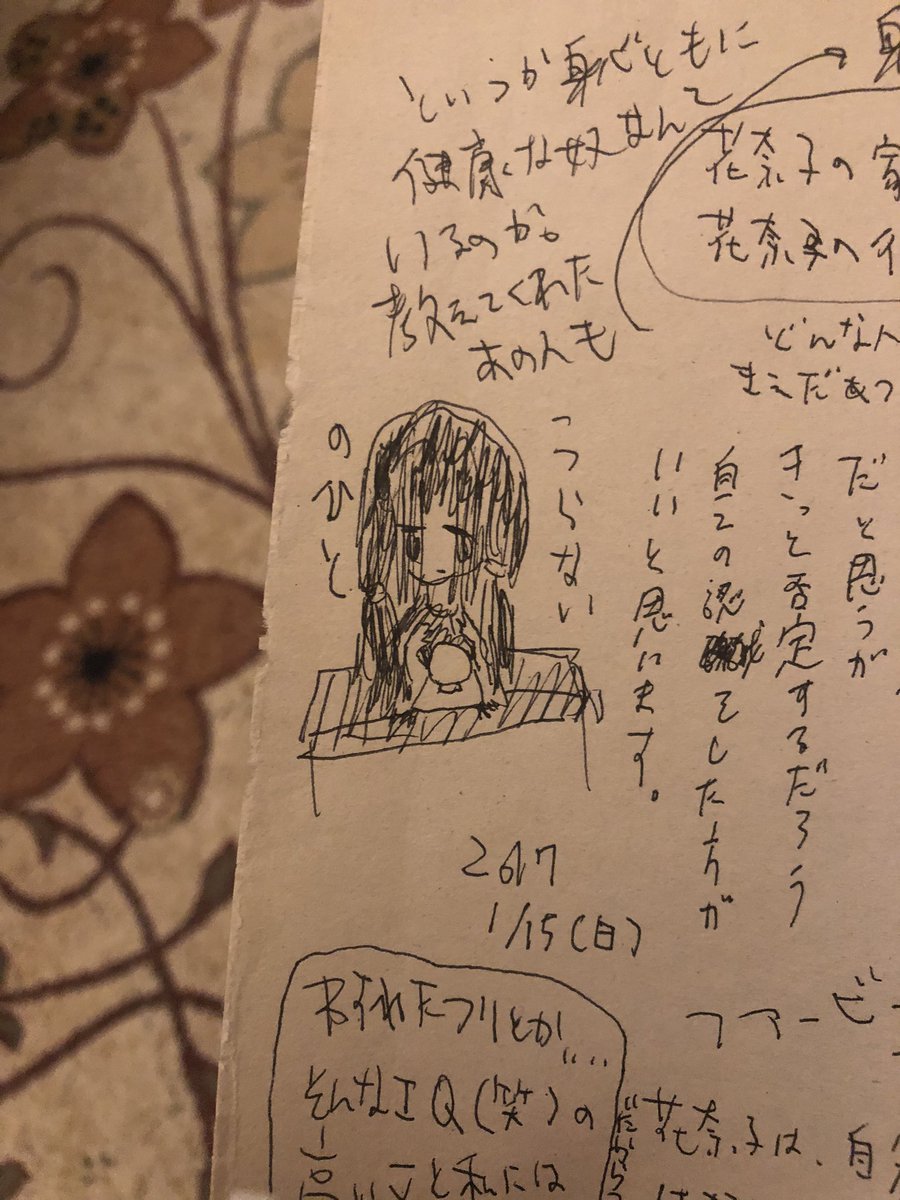 というか身心ともに
健康な奴なんて
いるのか。
教えてくれた
あの人も
花奈子の家
花奈子のイ
どんな人
きえだあつ
だと思うが
きっと否定するだろう
自ての認をした方が
いいと思います。
つらない
のひと
2017
1/15(日)
忘れたフリとか
そんなIQ(笑)の
高いこと私には
だから
ファービー
花奈子は、自分